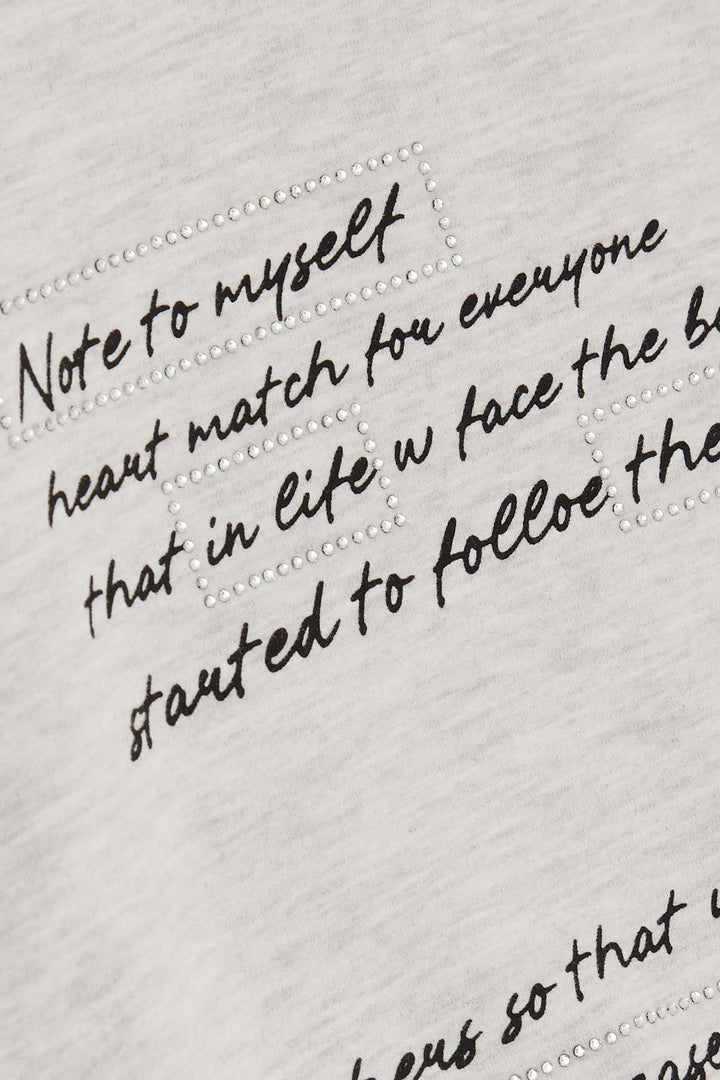 Note to myself
heart match for everyone
that in life w face the
started to folloe the
so that